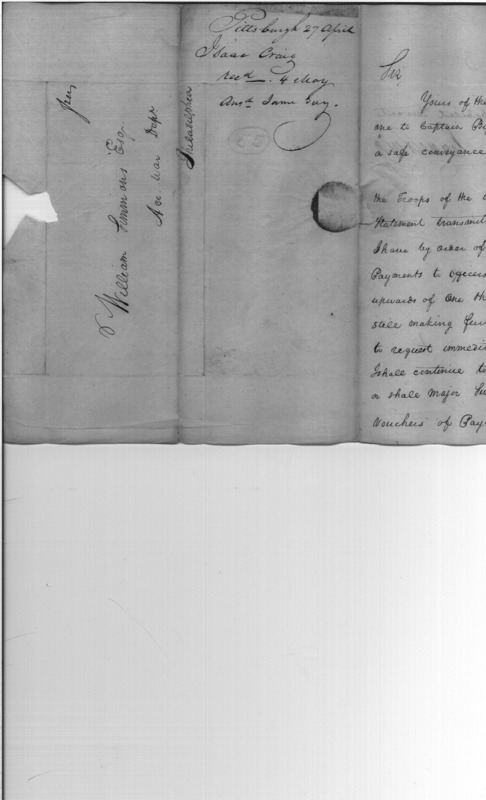 free
William Simmons Esq.
Acc. War Dept.
Philadelphia
Pittsburgh 27 April
Isaac Craig
recd. 4 May
Ansd. Same day.
Sir,
Yours of the
one to Captain
a safe conveyance
the Troops of the
Statement transmit
I have by order of
Payments to Officers
upwards of One th
still making fur
to request immedi
I shall continue to
or shall Major
Vouchers of Pay